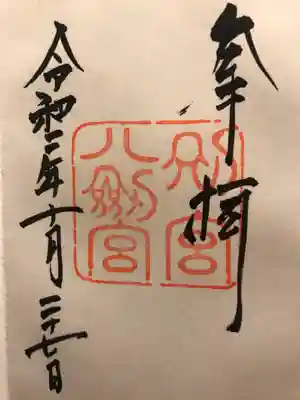 奉拝
別宮
八剣宮
令和二年十月二十七日